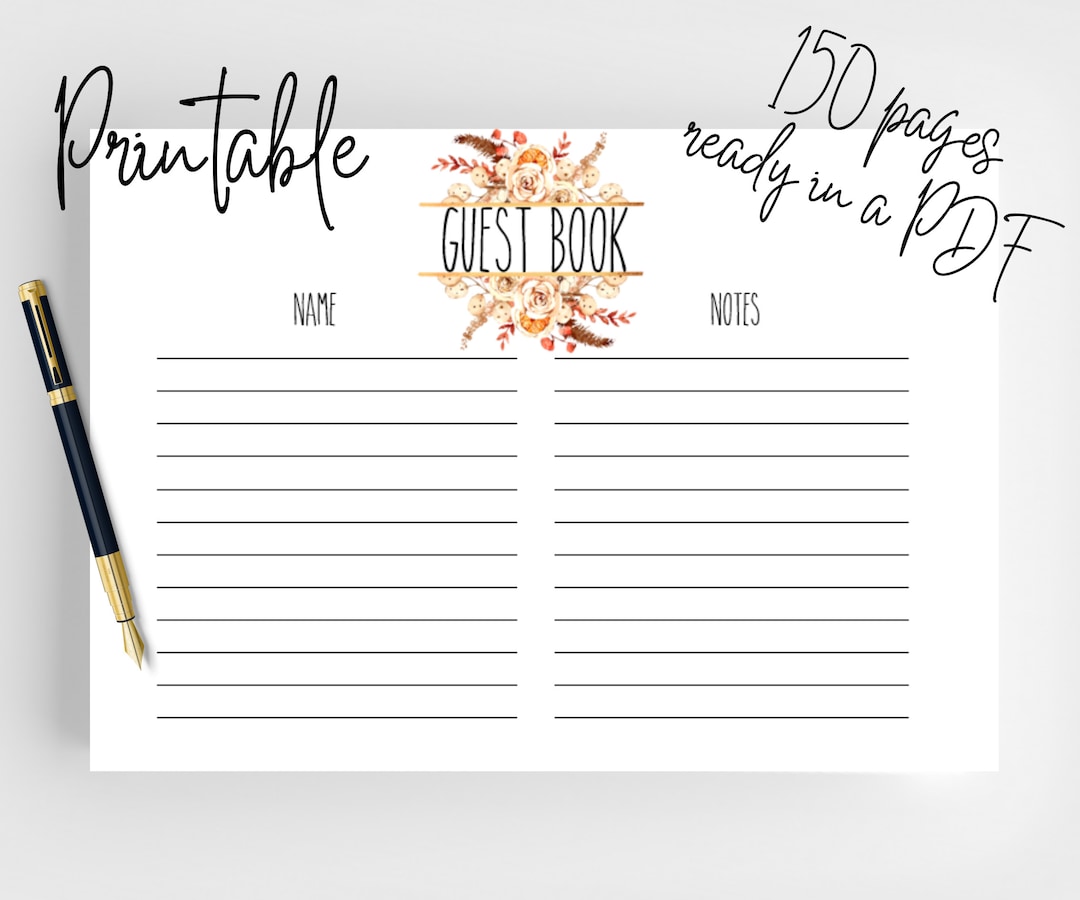 Printable
150 pages
ready in a PDF
GUEST BOOK
NAME
NOTES